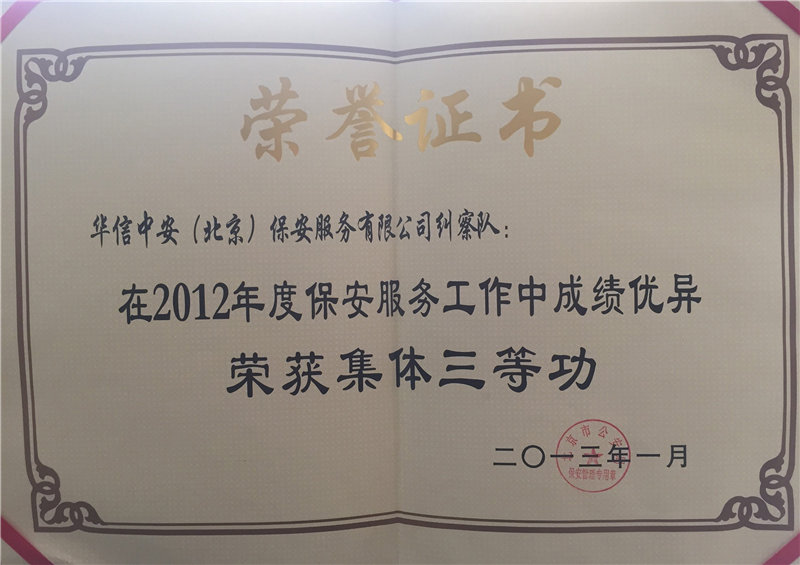 荣誉证书
华信中安（北京）保安服务有限公司纠察队：
在2012年度保安服务工作中成绩优异
荣获集体三等功
二〇一三年一月
北京市公安局
保安管理专用章